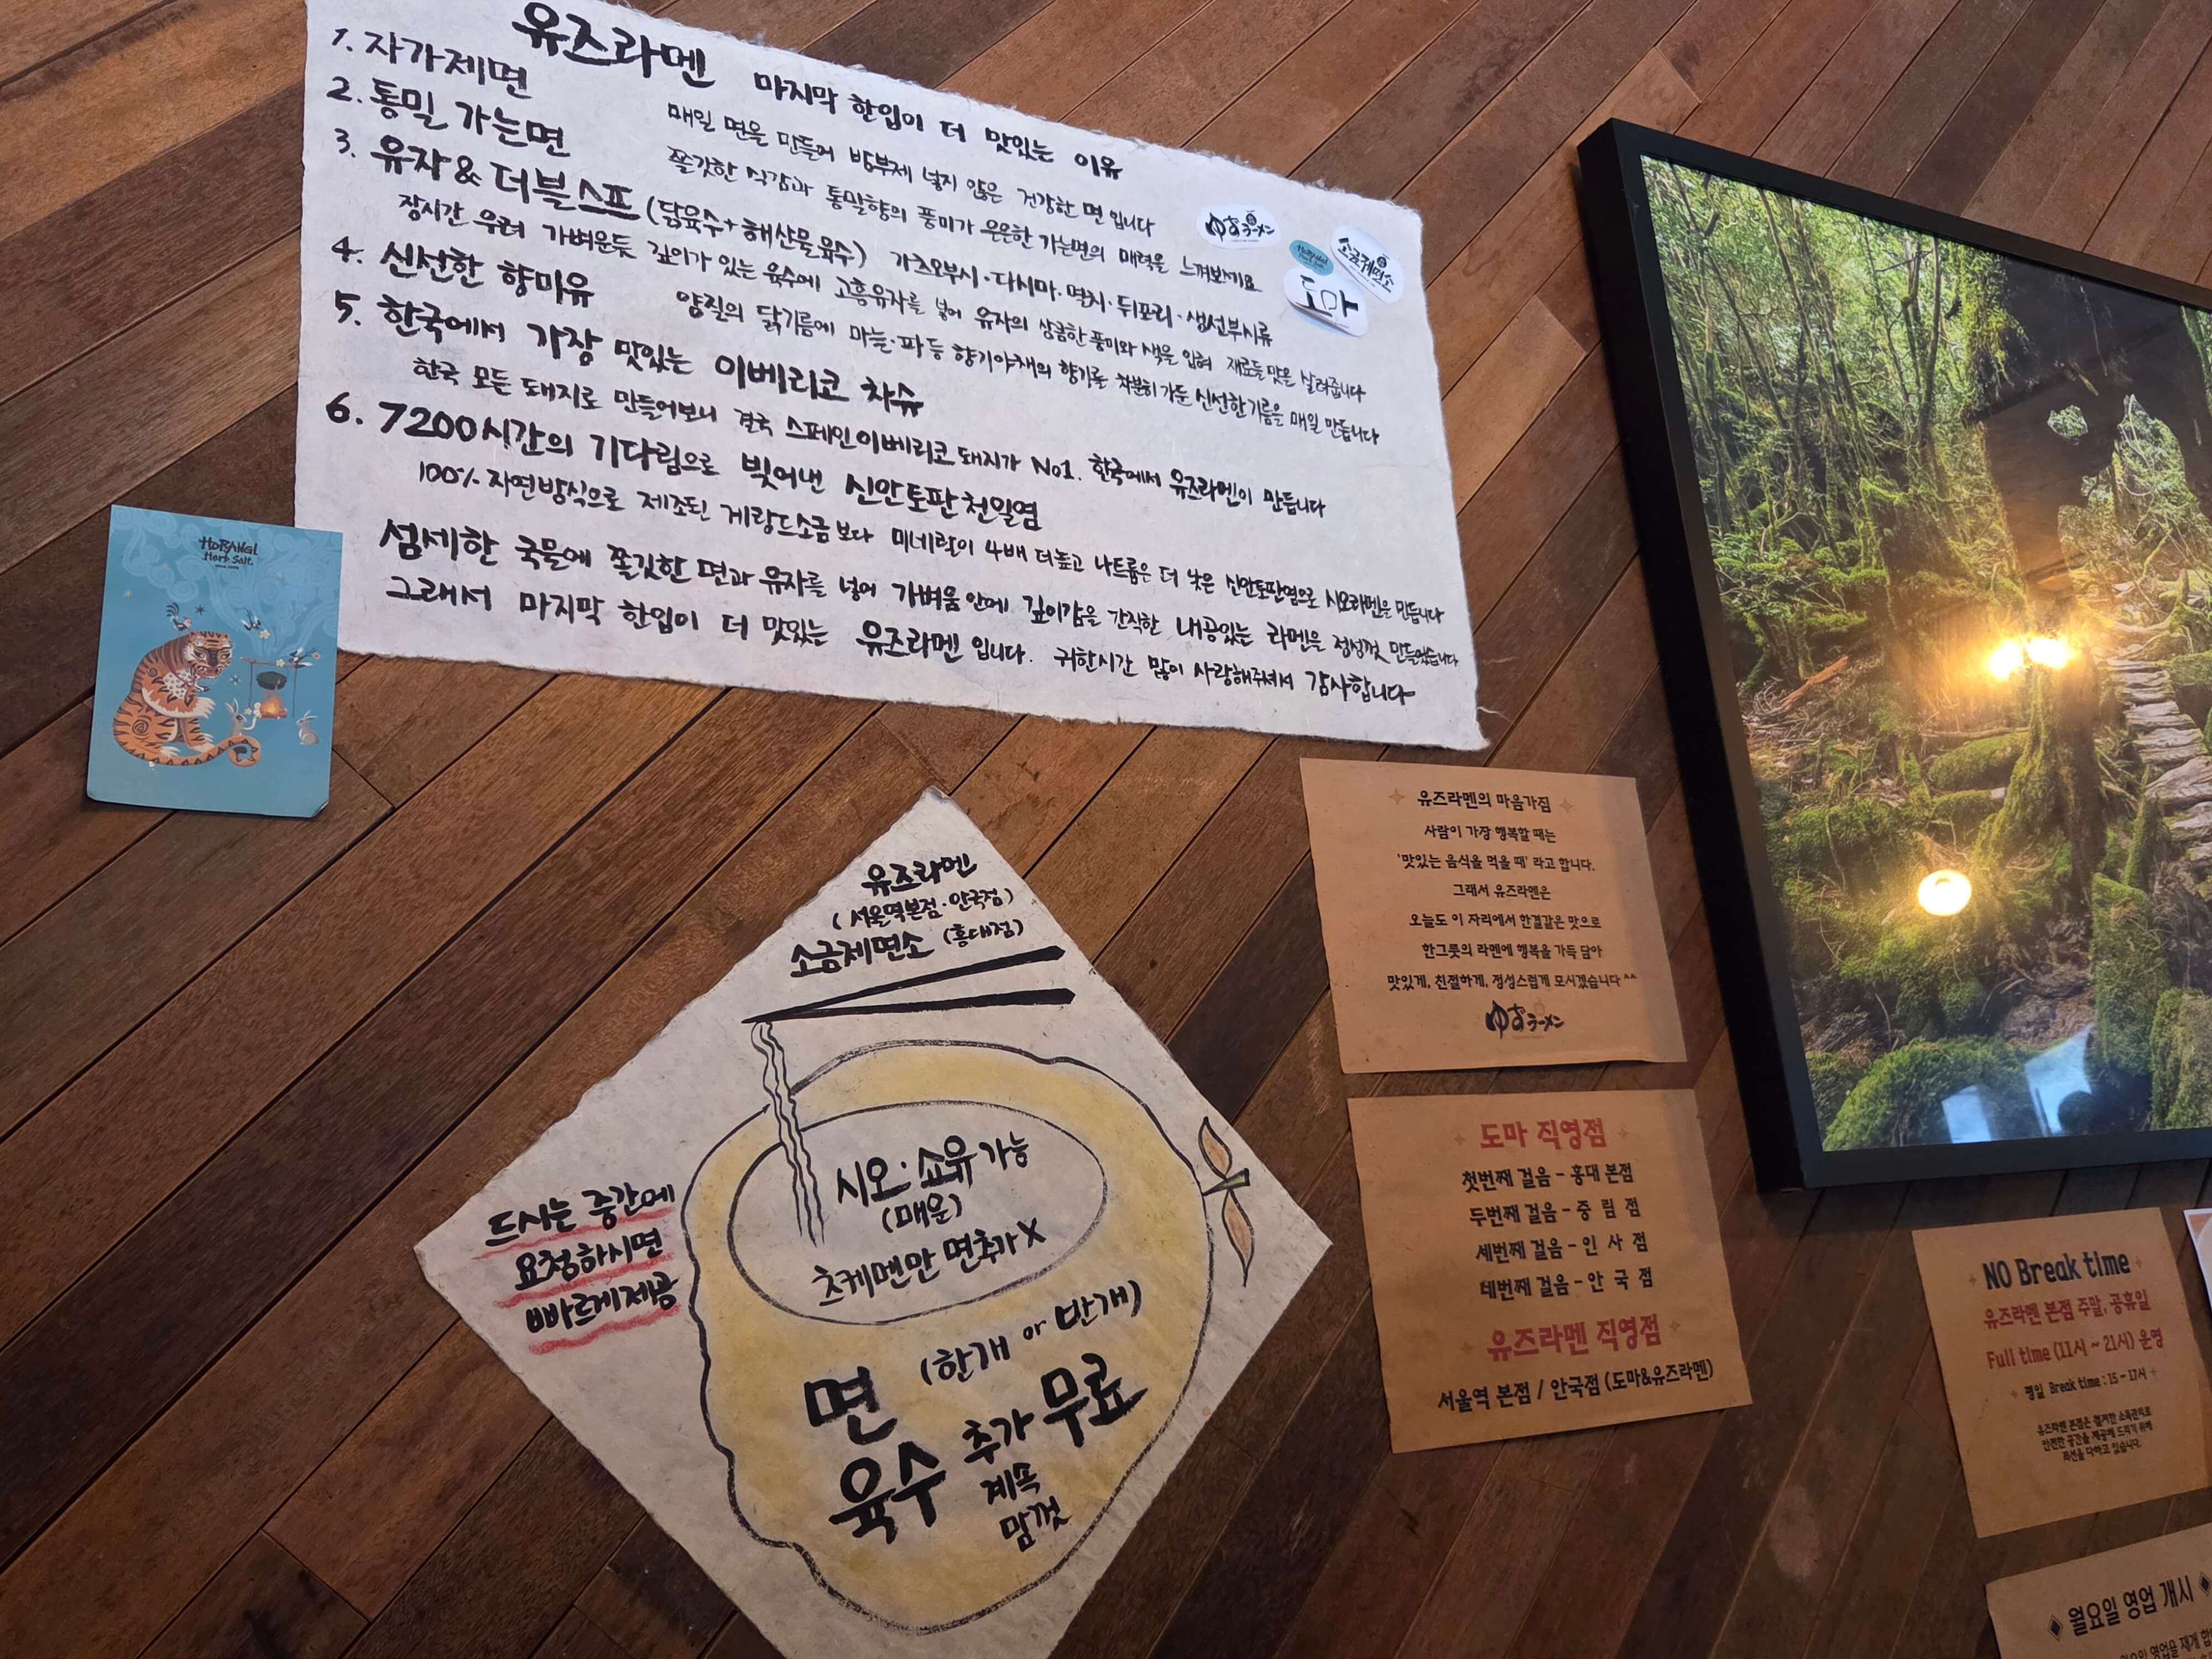 유즈라멘 마지막 한입이 더 맛있는 이유
1. 자가제면 매일 면을 만들어 방부제 넣지 않은 건강한 면 입니다
2. 통밀 가는면 쫄깃한 식감과 통밀향의 풍미가 은은한 가는면의 매력을 느껴보세요
3. 유자 & 더블스프 (닭육수+해산물육수) 가츠오부시·다시마·멸치·뒤포리·생선부시류
장시간 우려 가벼운듯 깊이가 있는 육수에 고흥유자를 넣어 유자의 상큼한 풍미와 색을 입혀 재료들맛을 살려줍니다
4. 신선한 향미유 양질의 닭기름에 마늘·파 등 향기야채의 향기를 차분히 가둔 신선한기름을 매일 만듭니다
5. 한국에서 가장 맛있는 이베리코 차슈
한국 모든 돼지로 만들어보니 결국 스페인이베리코 돼지가 No1. 한국에서 유즈라멘이 만듭니다
6. 7200시간의 기다림으로 빚어낸 신안토판천일염
100% 자연방식으로 제조된 게랑드소금보다 미네랄이 4배 더높고 나트륨은 더 낮은 신안토판염으로 시오라멘을 만듭니다
섬세한 국물에 쫄깃한 면과 유자를 넣어 가벼움안에 깊이감을 간직한 내공있는 라멘을 정성껏 만들었습니다
그래서 마지막 한입이 더 맛있는 유즈라멘 입니다. 귀한시간 많이 사랑해주셔서 감사합니다
ゆずラーメン
HORANGI
Herb Salt.
소금제면소
도마
HORANGI
Herb Salt.
유즈라멘
(서울역본점·안국점)
소금제면소 (홍대점)
시오·쇼유 가능
(매운)
츠케멘만 면추가X
드시는 중간에
요청하시면
빠르게제공
(한개 or 반개)
면
육수 추가 무료
계속
맘껏
유즈라멘의 마음가짐
사람이 가장 행복할 때는
'맛있는 음식을 먹을 때' 라고 합니다.
그래서 유즈라멘은
오늘도 이 자리에서 한결같은 맛으로
한그릇의 라멘에 행복을 가득 담아
맛있게, 친절하게, 정성스럽게 모시겠습니다 ^^
ゆずラーメン
도마 직영점
첫번째 걸음 - 홍대 본점
두번째 걸음 - 중 림 점
세번째 걸음 - 인 사 점
네번째 걸음 - 안 국 점
유즈라멘 직영점
서울역 본점 / 안국점 (도마&유즈라멘)
NO Break time
유즈라멘 본점 주말, 공휴일
Full time (11시 ~ 21시) 운영
평일 Break time : 15 - 17시
유즈라멘 본점은 철저한 소독관리로
안전한 공간을 제공해 드리기 위해
최선을 다하고 있습니다.
월요일 영업 개시